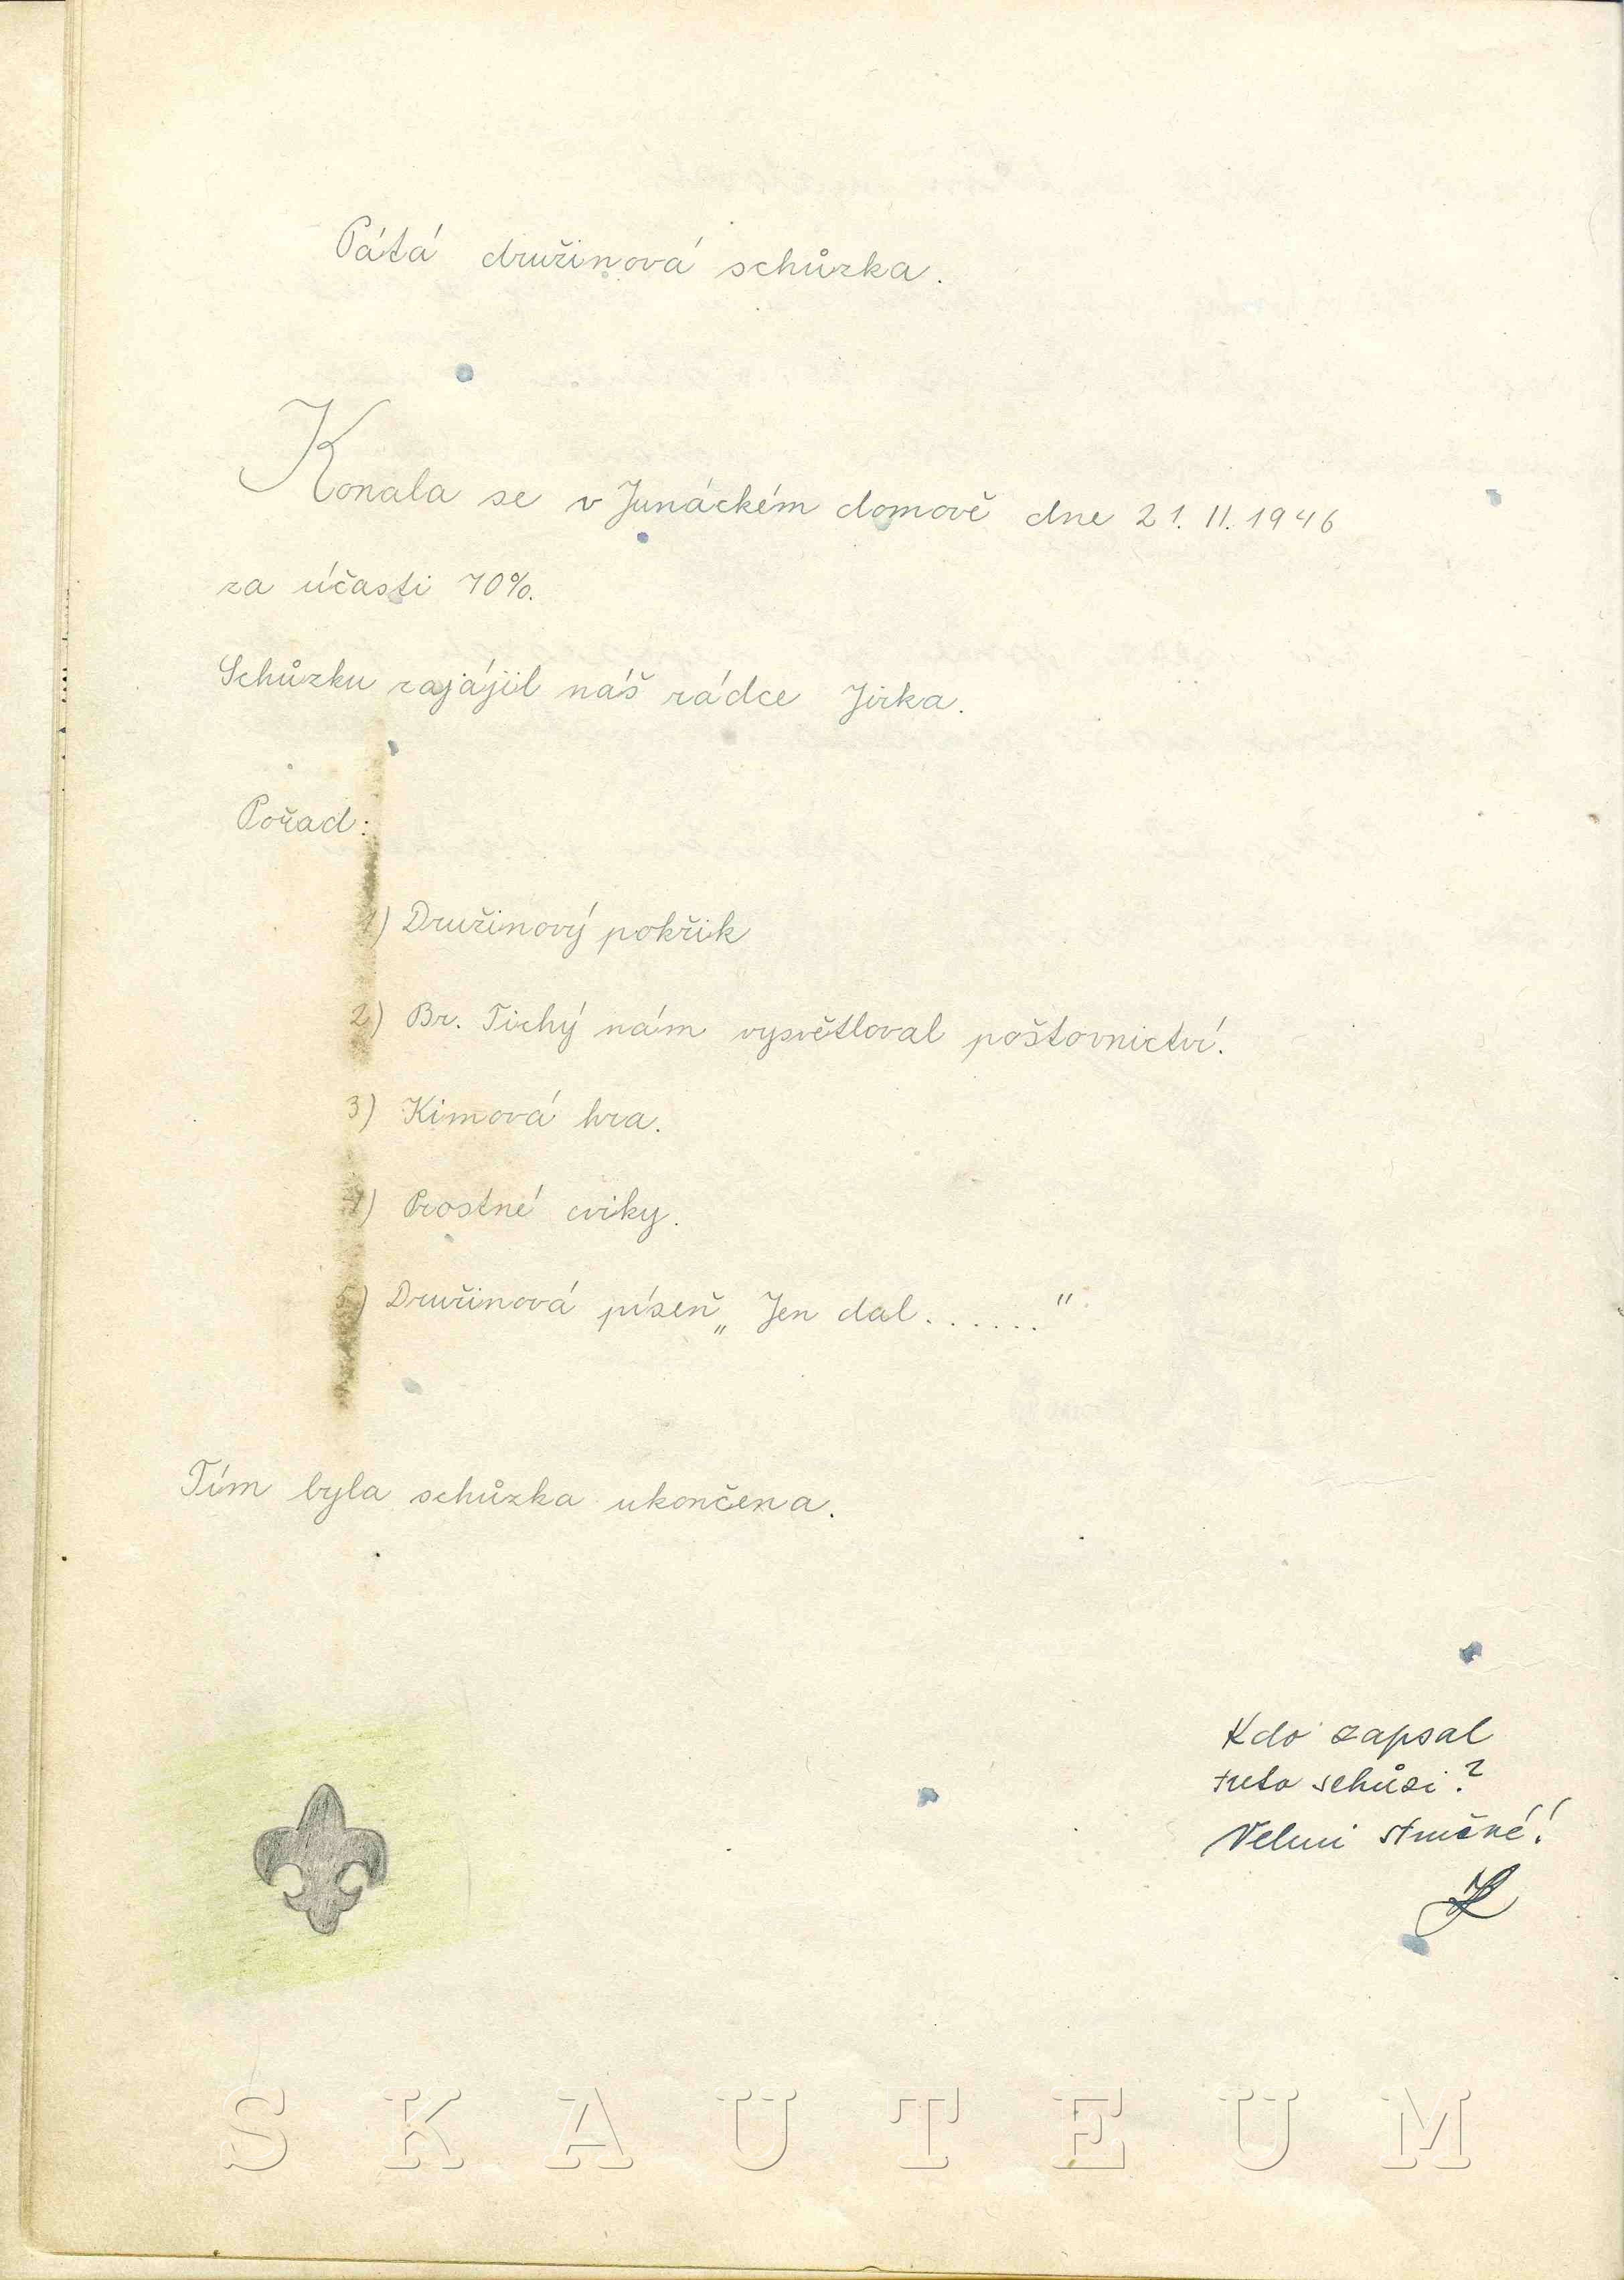 Pátá družinová schůzka.
Konala se v Junáckém domově dne 21. II. 1946
za účasti 70%.
Schůzku zajájil náš rádce Jirka.
Pořad:
1) Družinový pokřik
2) Br. Tichý nám vysvětloval poštovnictví.
3) Kimová hra.
4) Prostné cviky.
5) Družinová píseň „ Jen dal . . . . . . "
Tím byla schůzka ukončena.
Kdo zapsal
tuto schůzi?
Velmi stručné!
SKAUTEUM